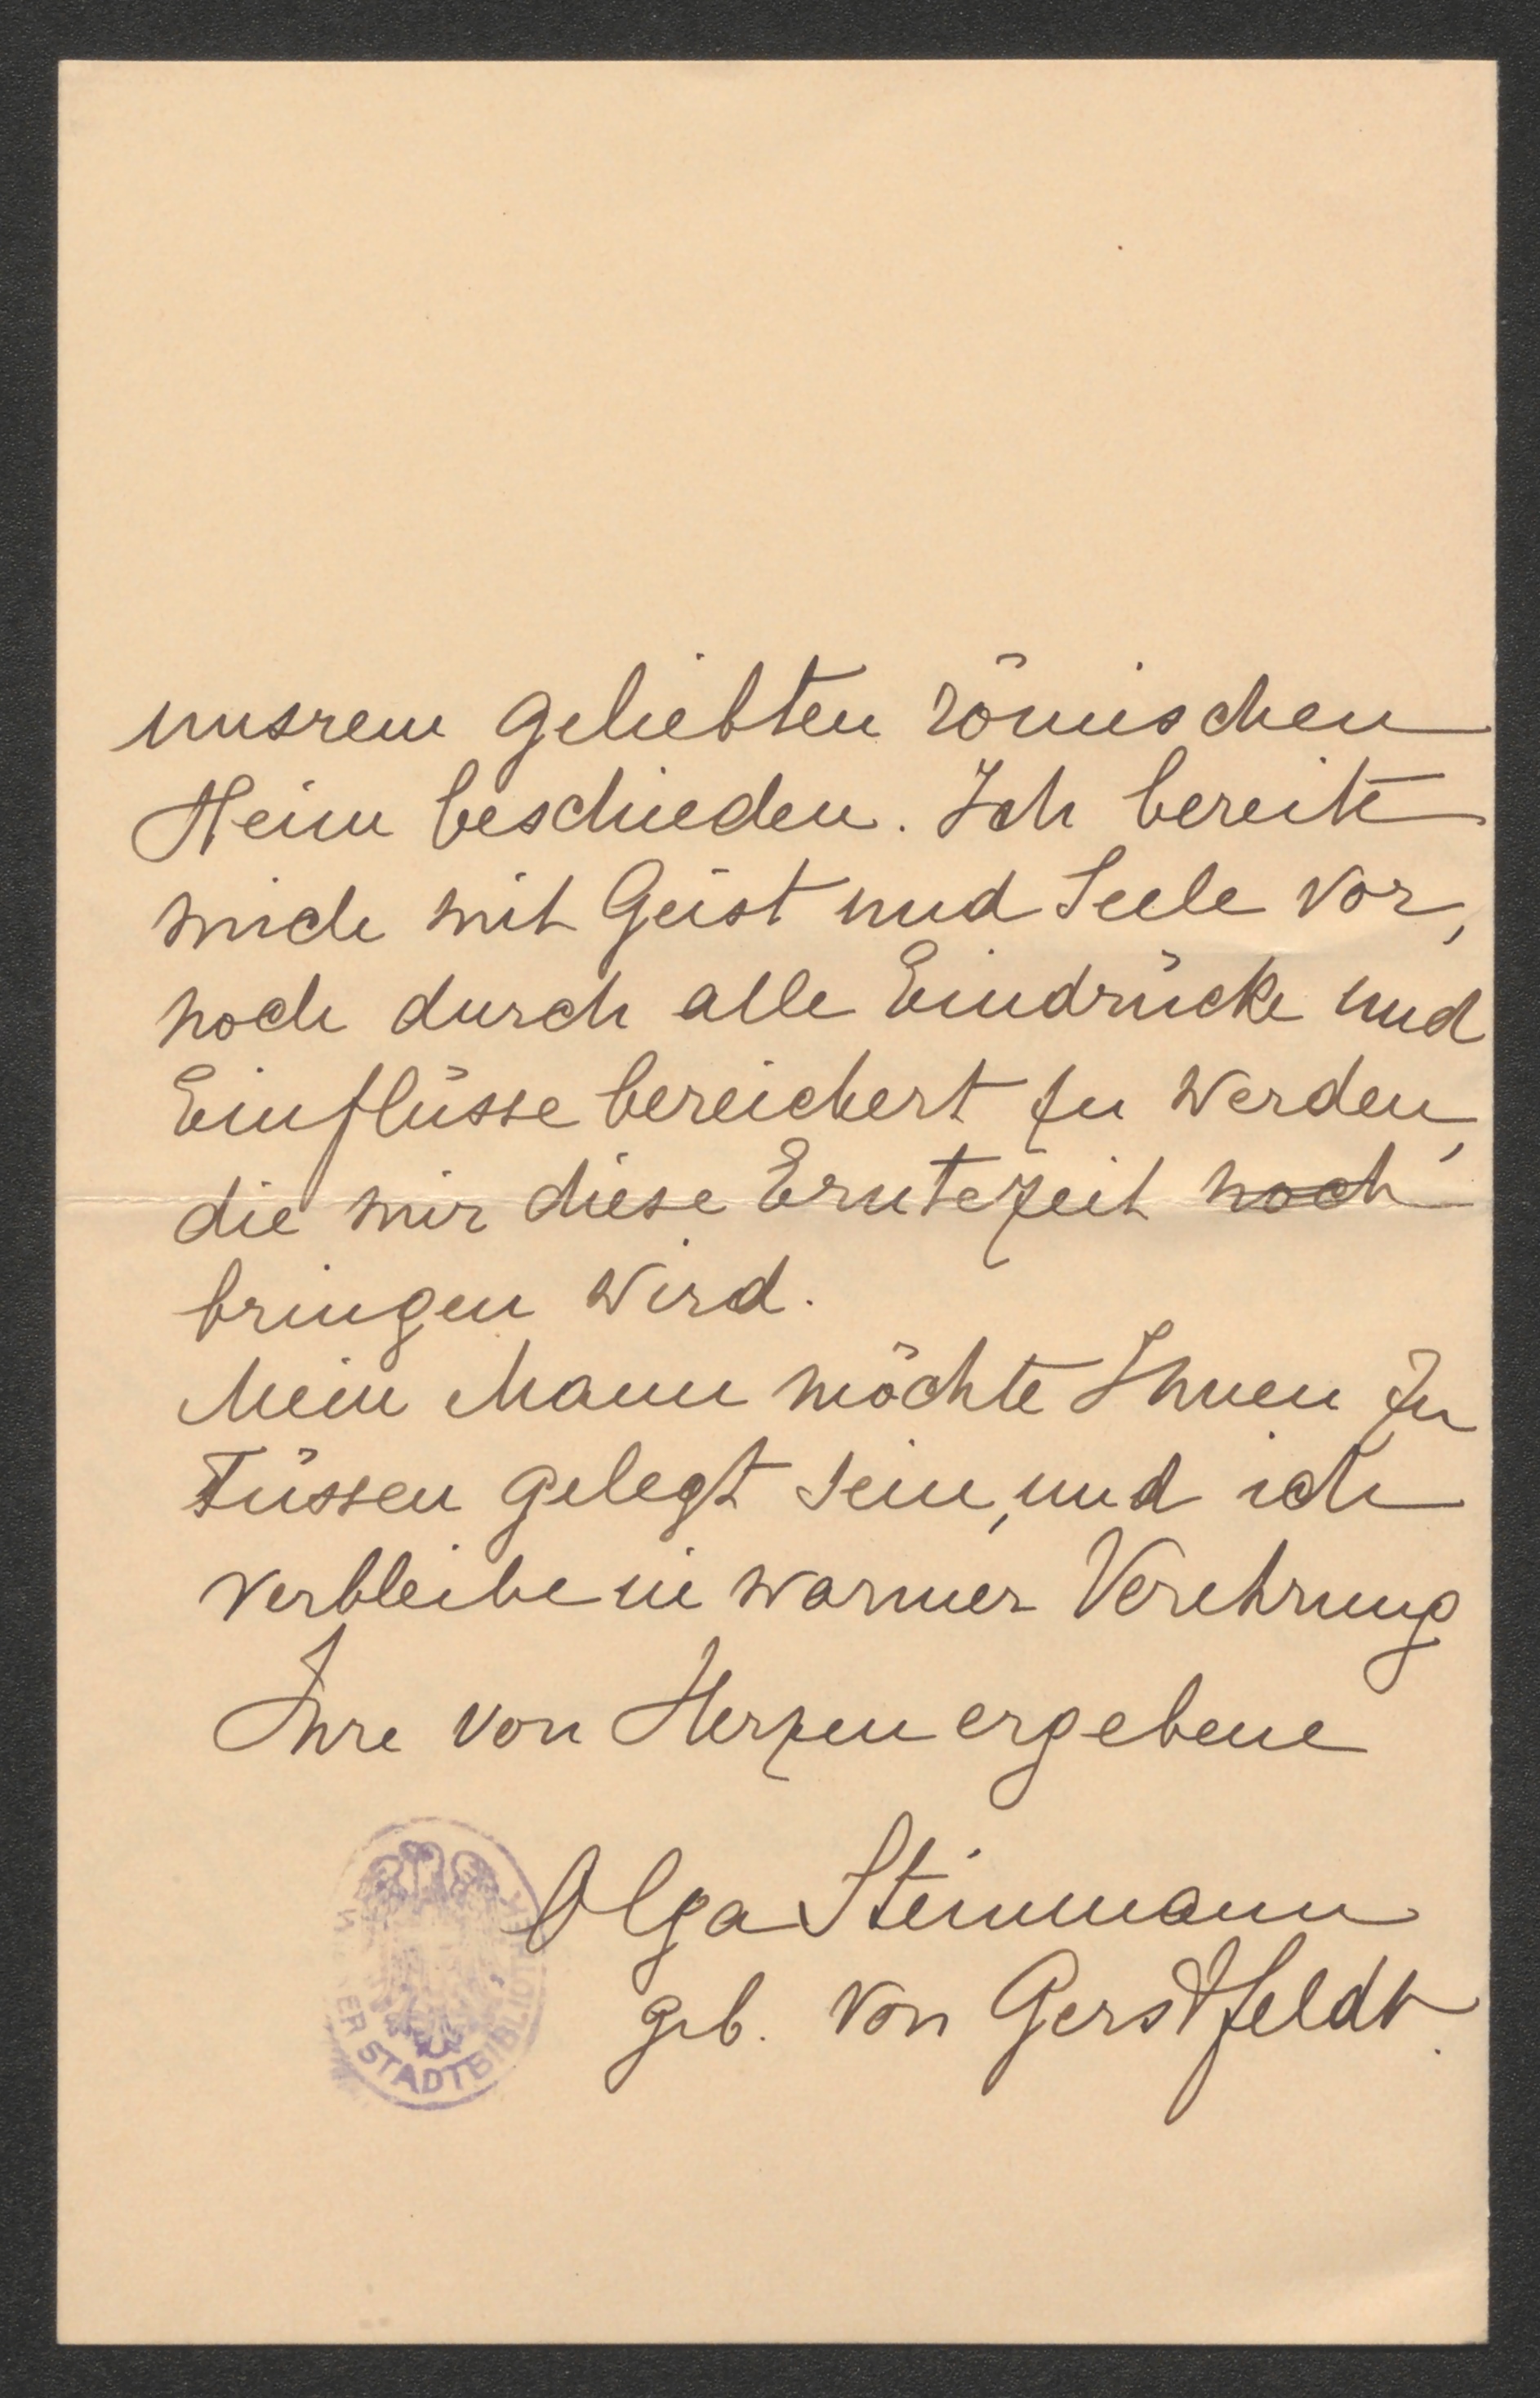 unsrem geliebten römischen
Heim beschieden. Ich bereite
mich mit Geist und Seele vor,
noch durch alle Eindrücke und
Einflüsse bereichert zu werden,
die mir diese Erntezeit noch
bringen wird.
Mein Mann möchte Ihnen zu
Füssen gelegt sein, und ich
verbleibe in warmer Verehrung
Ihre von Herzen ergebene
Olga Steinmann
geb. von Gerstfeldt.
ER STADTBIBLIOT